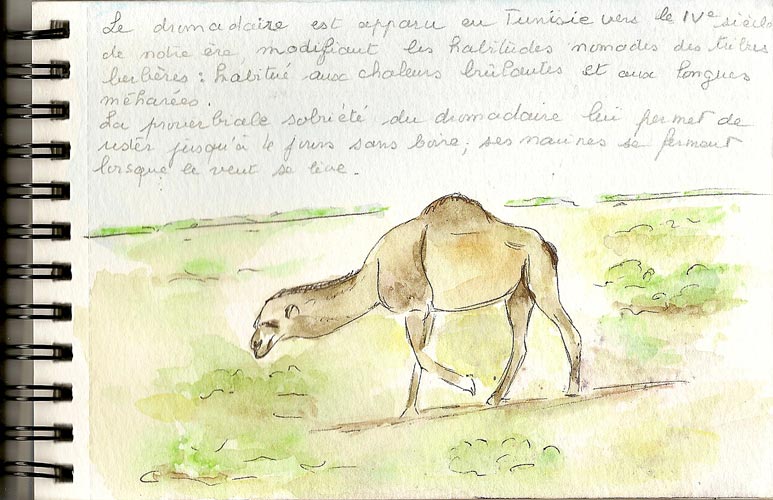 Le dromadaire est apparu en Tunisie vers le IVe siècle
de notre ère, modifiant les habitudes nomades des tribus
berbères : habitué aux chaleurs brûlantes et aux longues
méharées.
La proverbiale sobriété du dromadaire lui permet de
rester jusqu'à 4 jours sans boire, ses narines se ferment
lorsque le vent se lève.